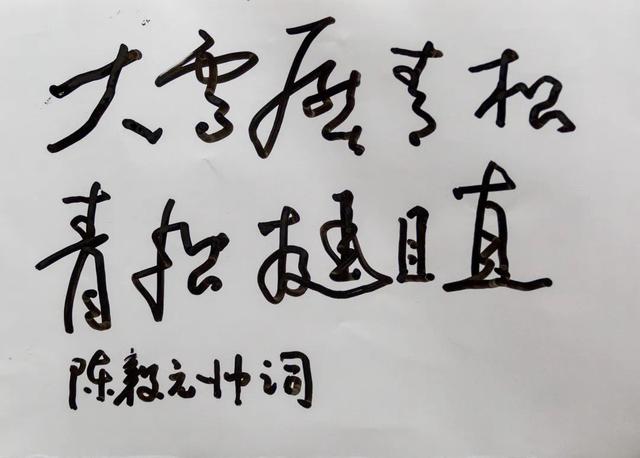 大雪压青松
青松挺且直
陈毅元帅词